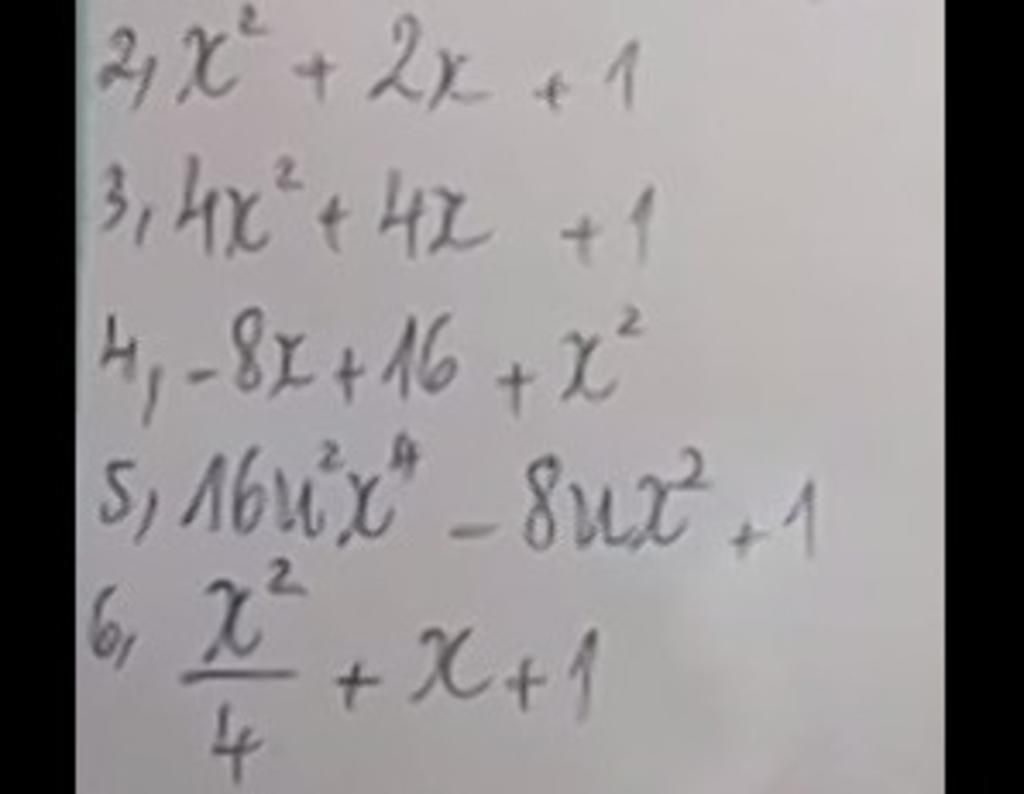 2, x² + 2x + 1
3, 4x² + 4x + 1
4, -8x + 16 + x²
5, 16u²x⁴ - 8ux² + 1
6, x²/4 + x + 1